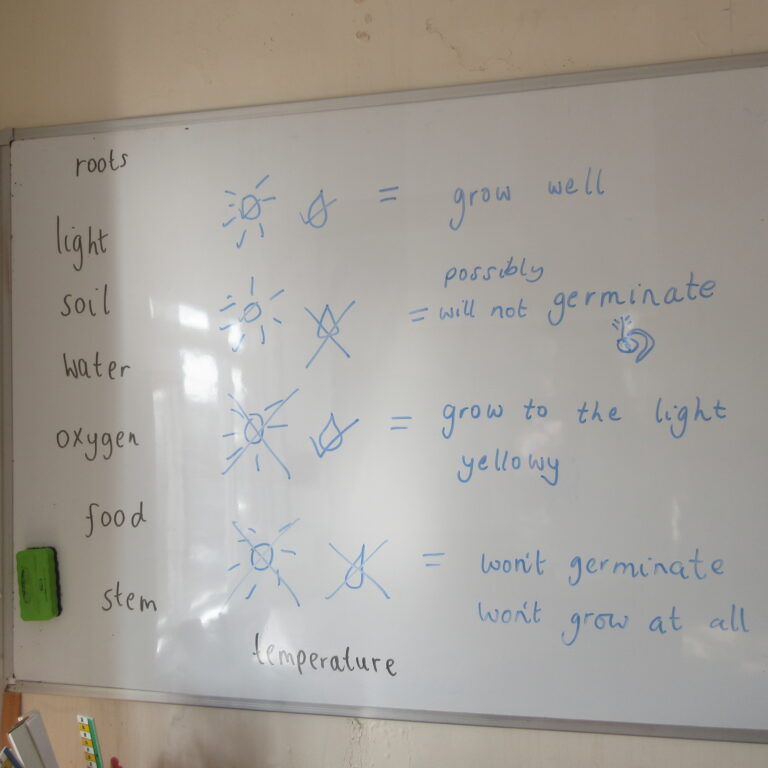 roots
light
soil
water
oxygen
food
stem
temperature
= grow well
possibly
= will not germinate
= grow to the light
yellowy
= won't germinate
won't grow at all